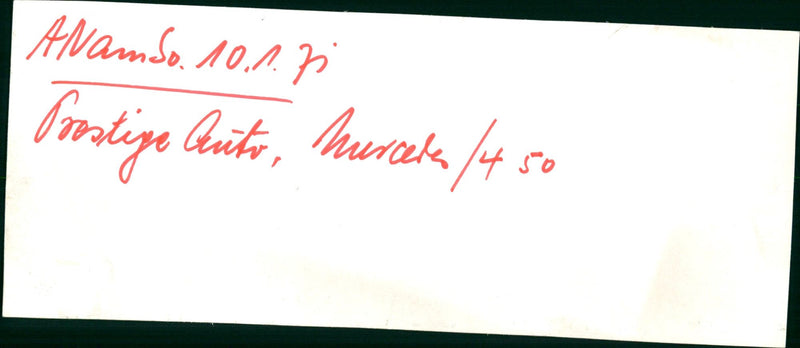 AN am So. 10.1.71
Prestige Auto, Mercedes/450